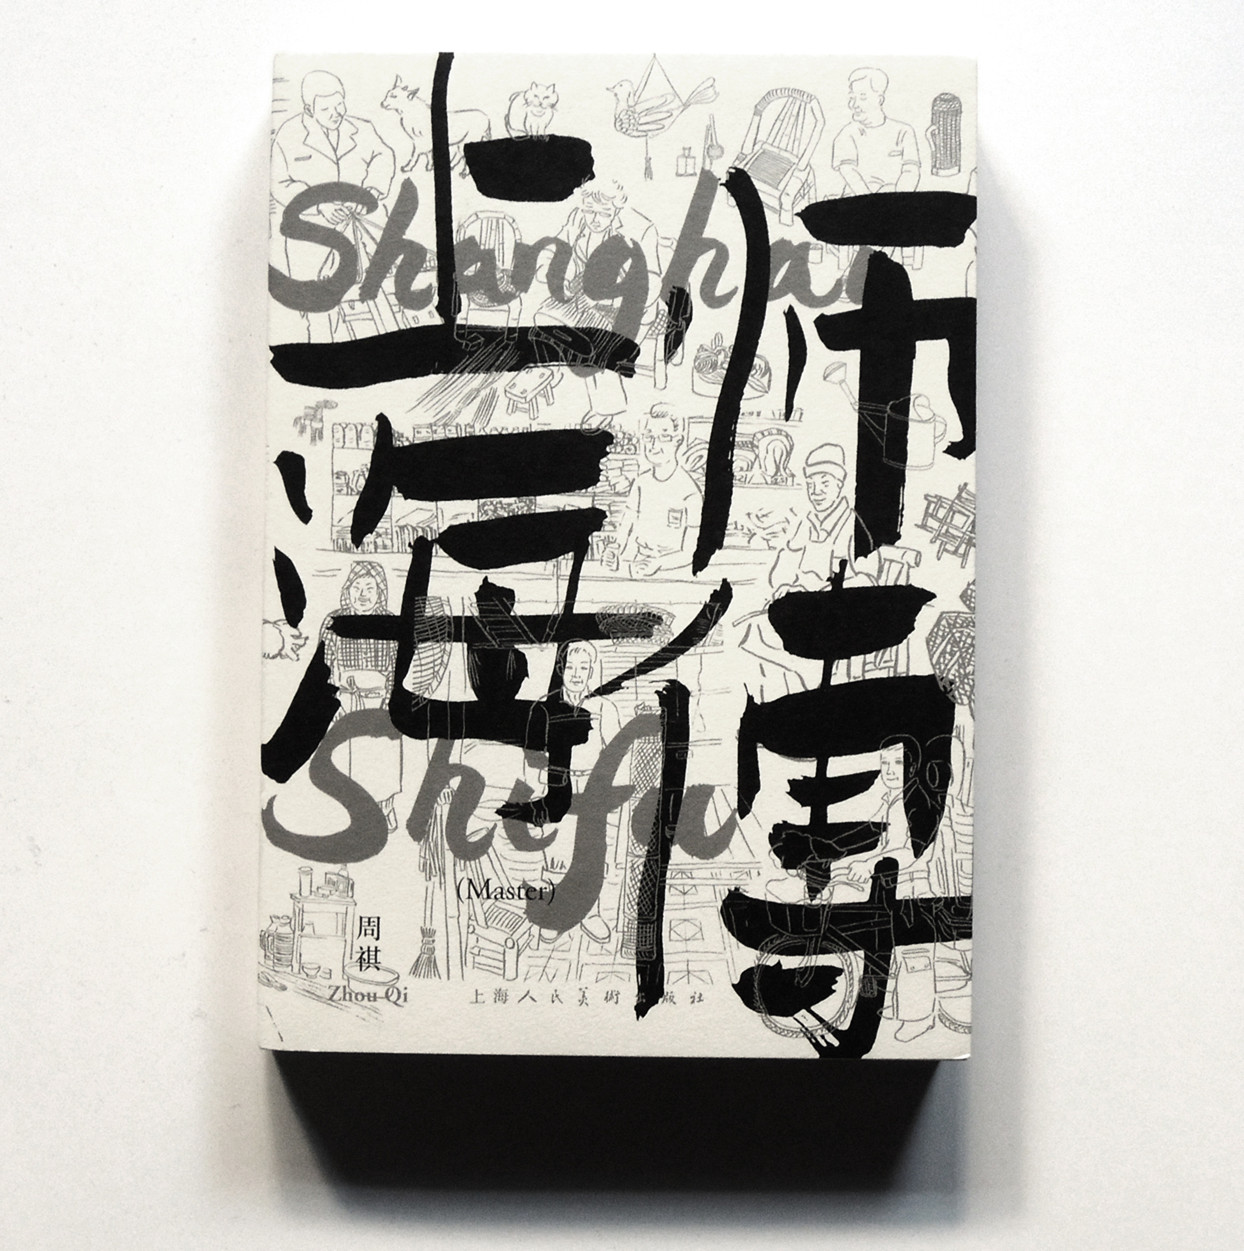 上海
师傅
Shanghai
Shifu
(Master)
周祺
Zhou Qi
上海人民美術出版社